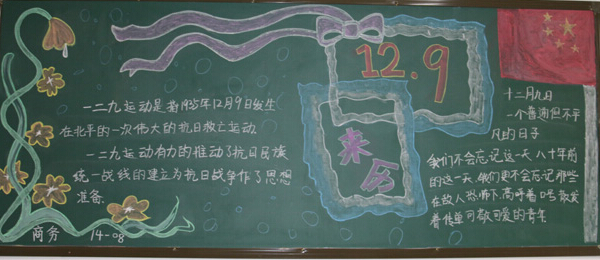 12.9
来历
一二九运动是指1935年12月9日发生
在北平的一次伟大的抗日救亡运动.
一二九运动有力的推动了抗日民族
统一战线的建立为抗日战争作了思想
准备.
商务 14-08
十二月九日
一个普通但不平
凡的日子
我们不会忘记这一天八十年前
的这一天.我们更不会忘记那些
在敌人恐怖下高呼着口号散发
着传单可敬可爱的青年